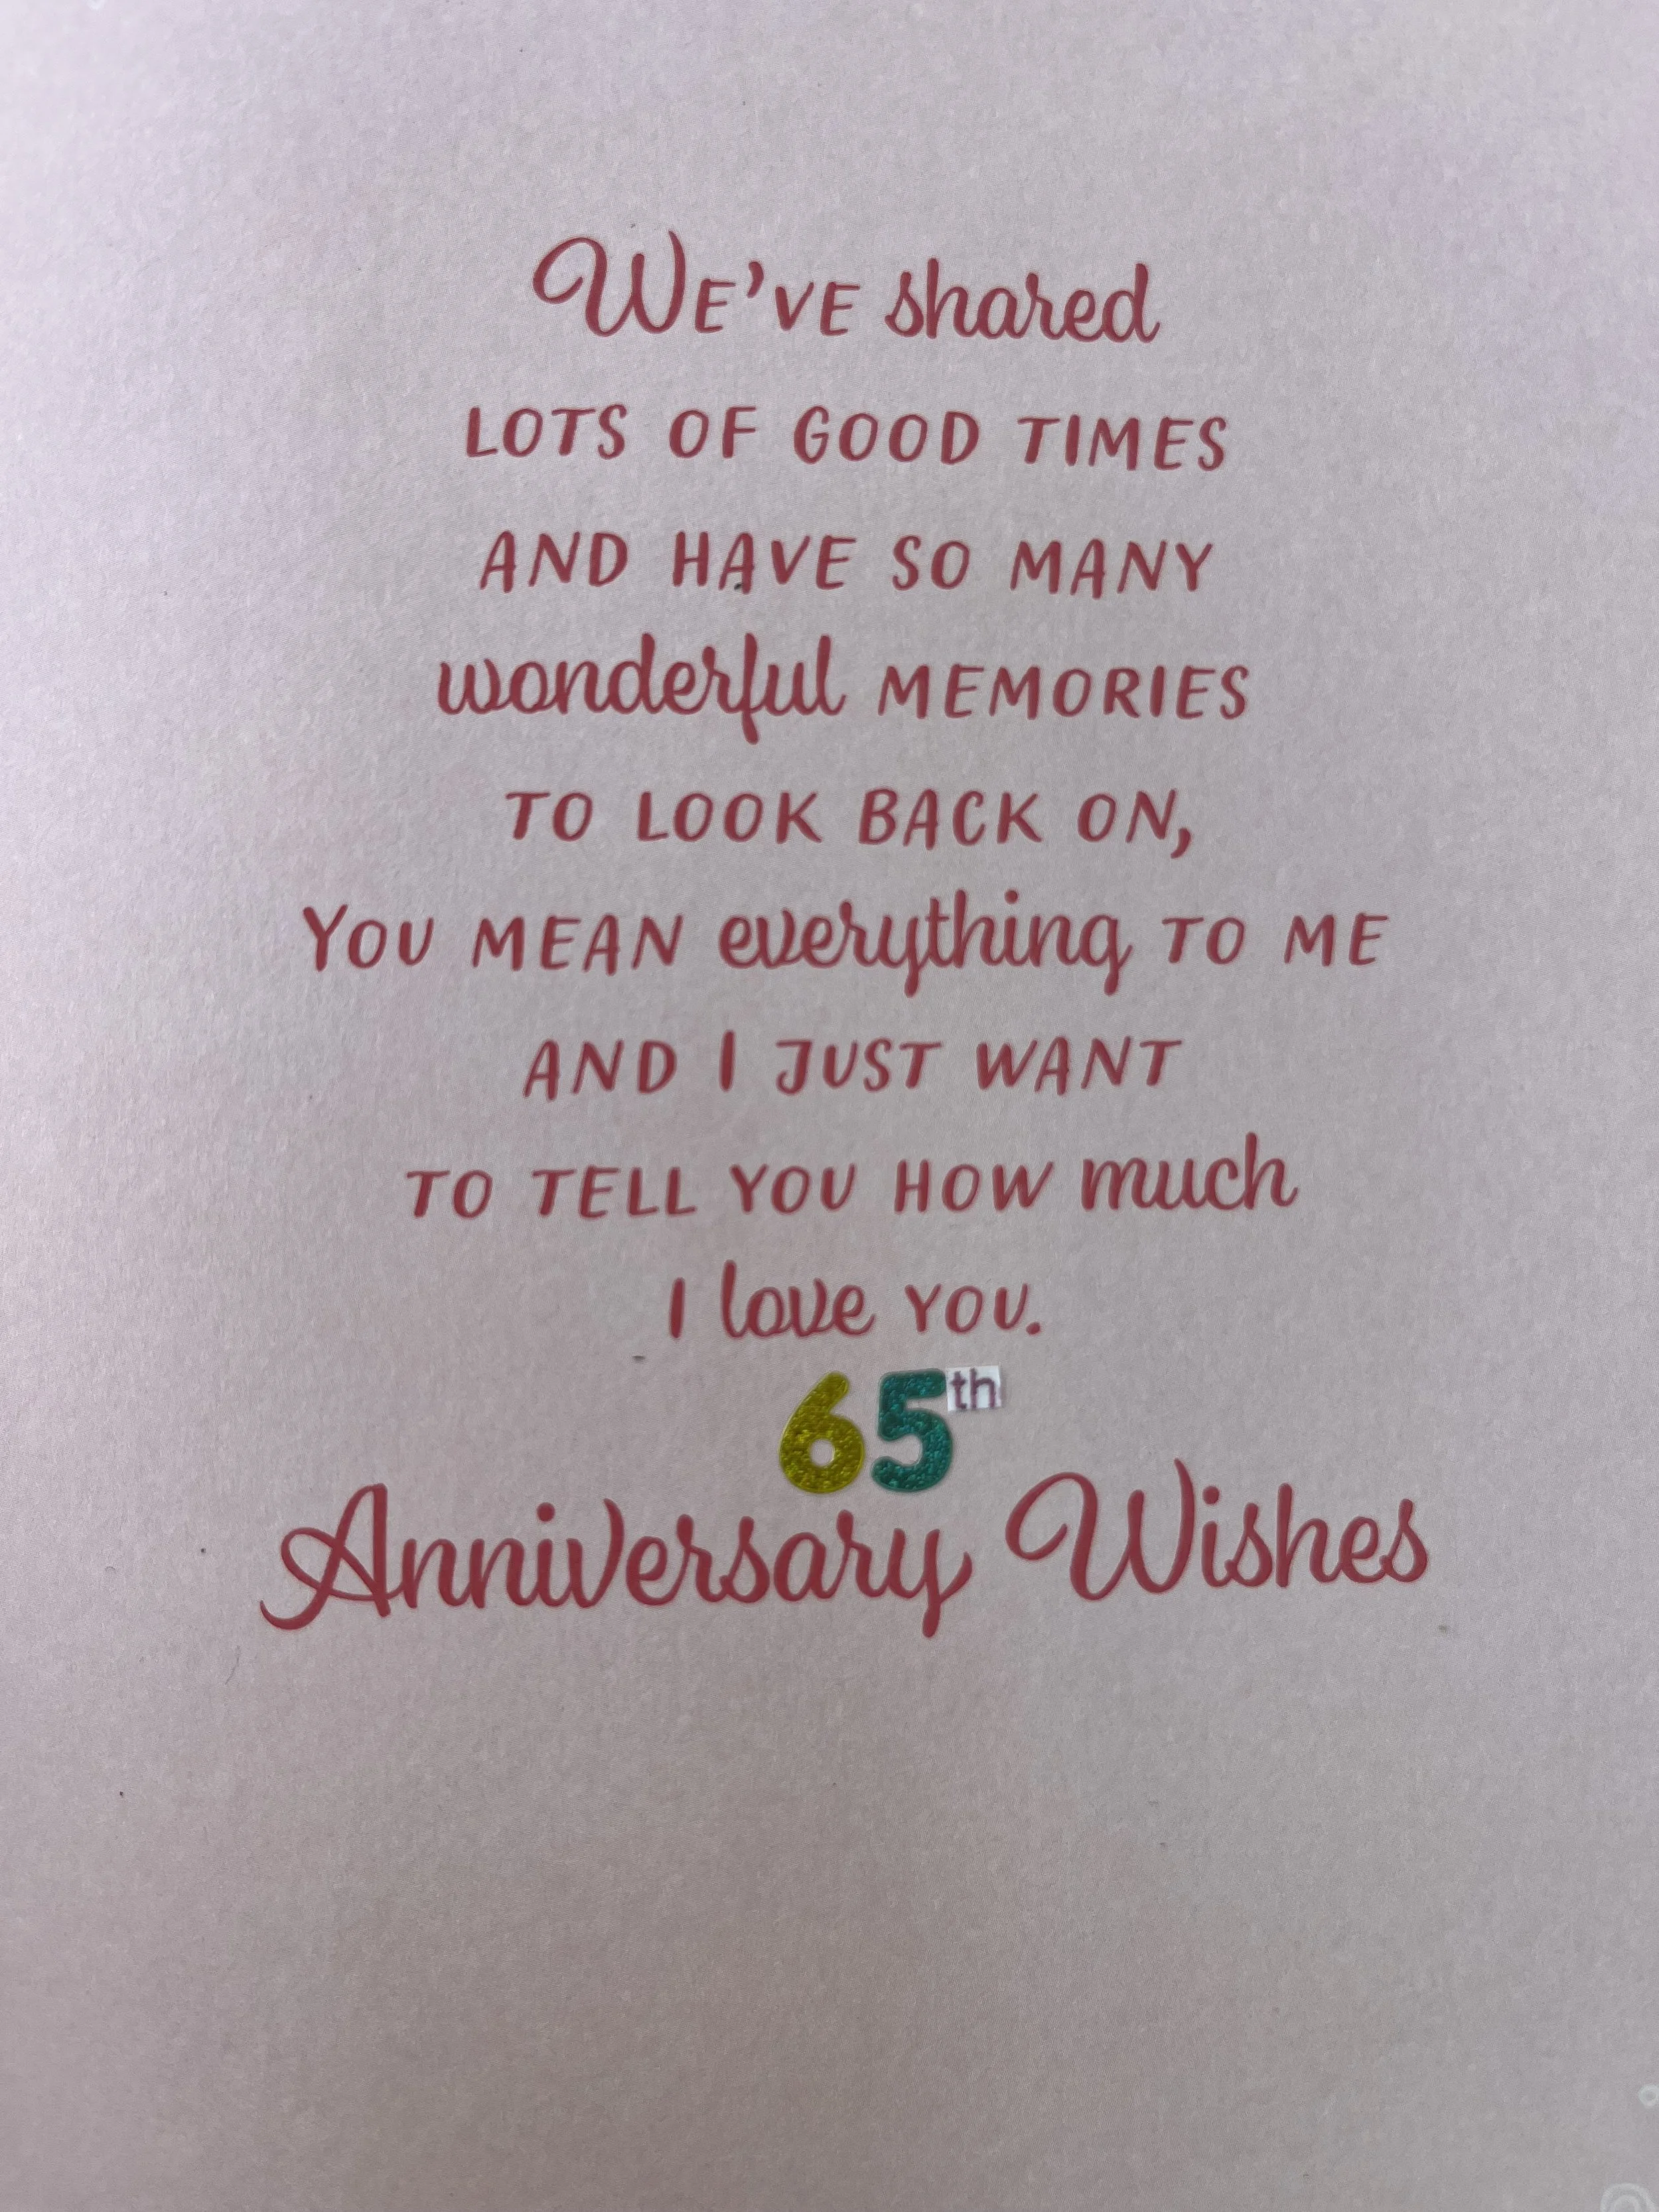 We've shared
LOTS OF GOOD TIMES
AND HAVE SO MANY
wonderful MEMORIES
TO LOOK BACK ON,
YOU MEAN everything TO ME
AND I JUST WANT
TO TELL YOU HOW much
I love YOU.
65th
Anniversary Wishes